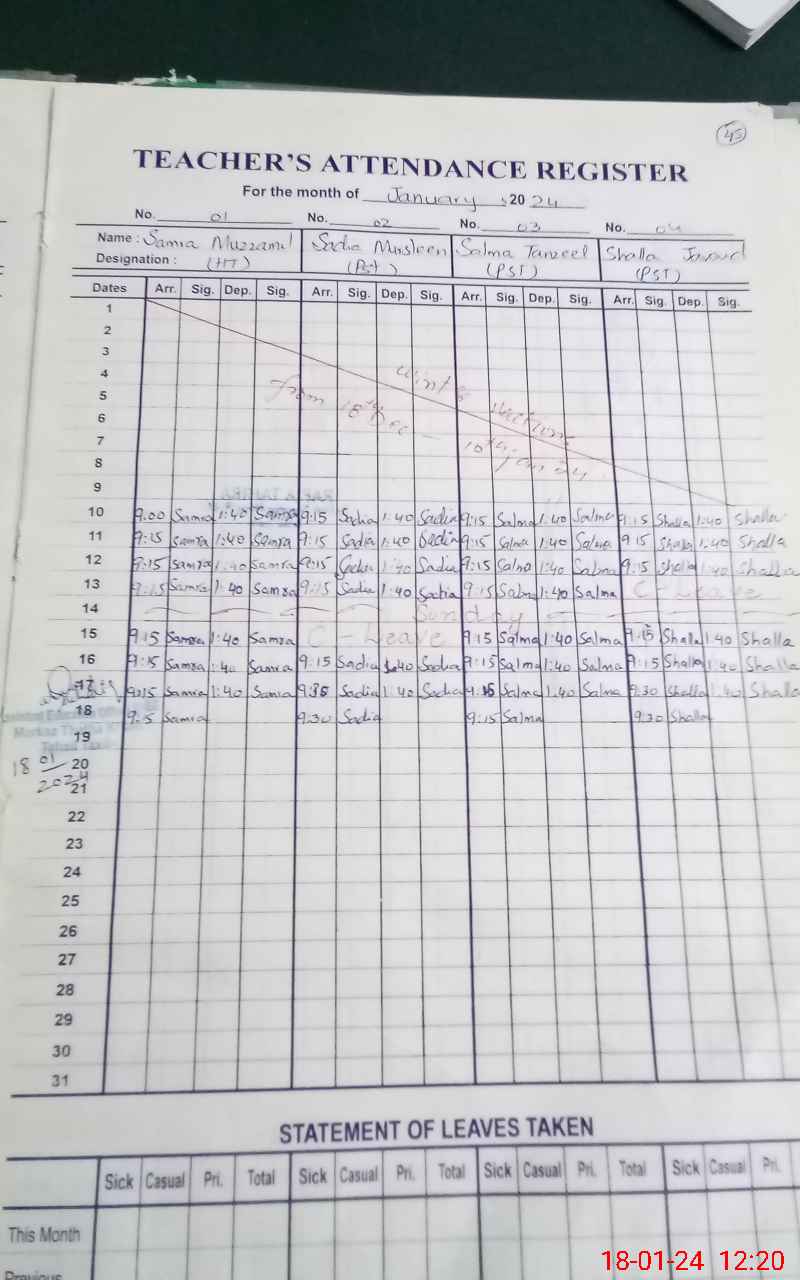 45
TEACHER'S ATTENDANCE REGISTER
For the month of January, 2024
No. 01 No. 02 No. 03 No. 04
Name: Samra Muzzamil Sadia Salma Tanzeel Shalla
Designation: (HT) (Pst) (PST) (PST)
Dates Arr. Sig. Dep. Sig. Arr. Sig. Dep. Sig. Arr. Sig. Dep. Sig. Arr. Sig. Dep. Sig.
1
2
3
4
5
from 18th Dec
6
7
10th jan 24
8
9
10 9:00 Samra 1:40 Samra 9:15 Sadia 1:40 Sadia 9:15 Salma 1:40 Salma 9:15 Shalla 1:40 Shalla
11 9:15 Samra 1:40 Samra 9:15 Sadia 1:40 Sadia 9:15 Salma 1:40 Salma 9 15 Shalla 1:40 Shalla
12 9:15 Samra 1:40 Samra 9:15 Sadia 1:40 Sadia 9:15 Salma 1:40 Salma 9:15 Shalla 1:40 Shalla
13 9:15 Samra 1:40 Samra 9:15 Sadia 1:40 Sadia 9:15 Salma 1:40 Salma C-Leave
14 Sunday
15 9:15 Samra 1:40 Samra C-Leave 9:15 Salma 1:40 Salma 9:15 Shalla 1:40 Shalla
16 9:15 Samra 1:40 Samra 9:15 Sadia 1:40 Sadia 9:15 Salma 1:40 Salma 9:15 Shalla 1:40 Shalla
17 9:15 Samra 1:40 Samra Sadia 1:40 Sadia Salma 1:40 Salma 9:30 Shalla 1:40 Shalla
18 9:15 Samra 9:30 Sadia 9:15 Salma 9:30 Shalla
19
18 01
20
2024
21
22
23
24
25
26
27
28
29
30
31
STATEMENT OF LEAVES TAKEN
Sick Casual Pri. Total Sick Casual Pri. Total Sick Casual Pri. Total Sick Casual Pri.
This Month
Previous
18-01-24 12:20